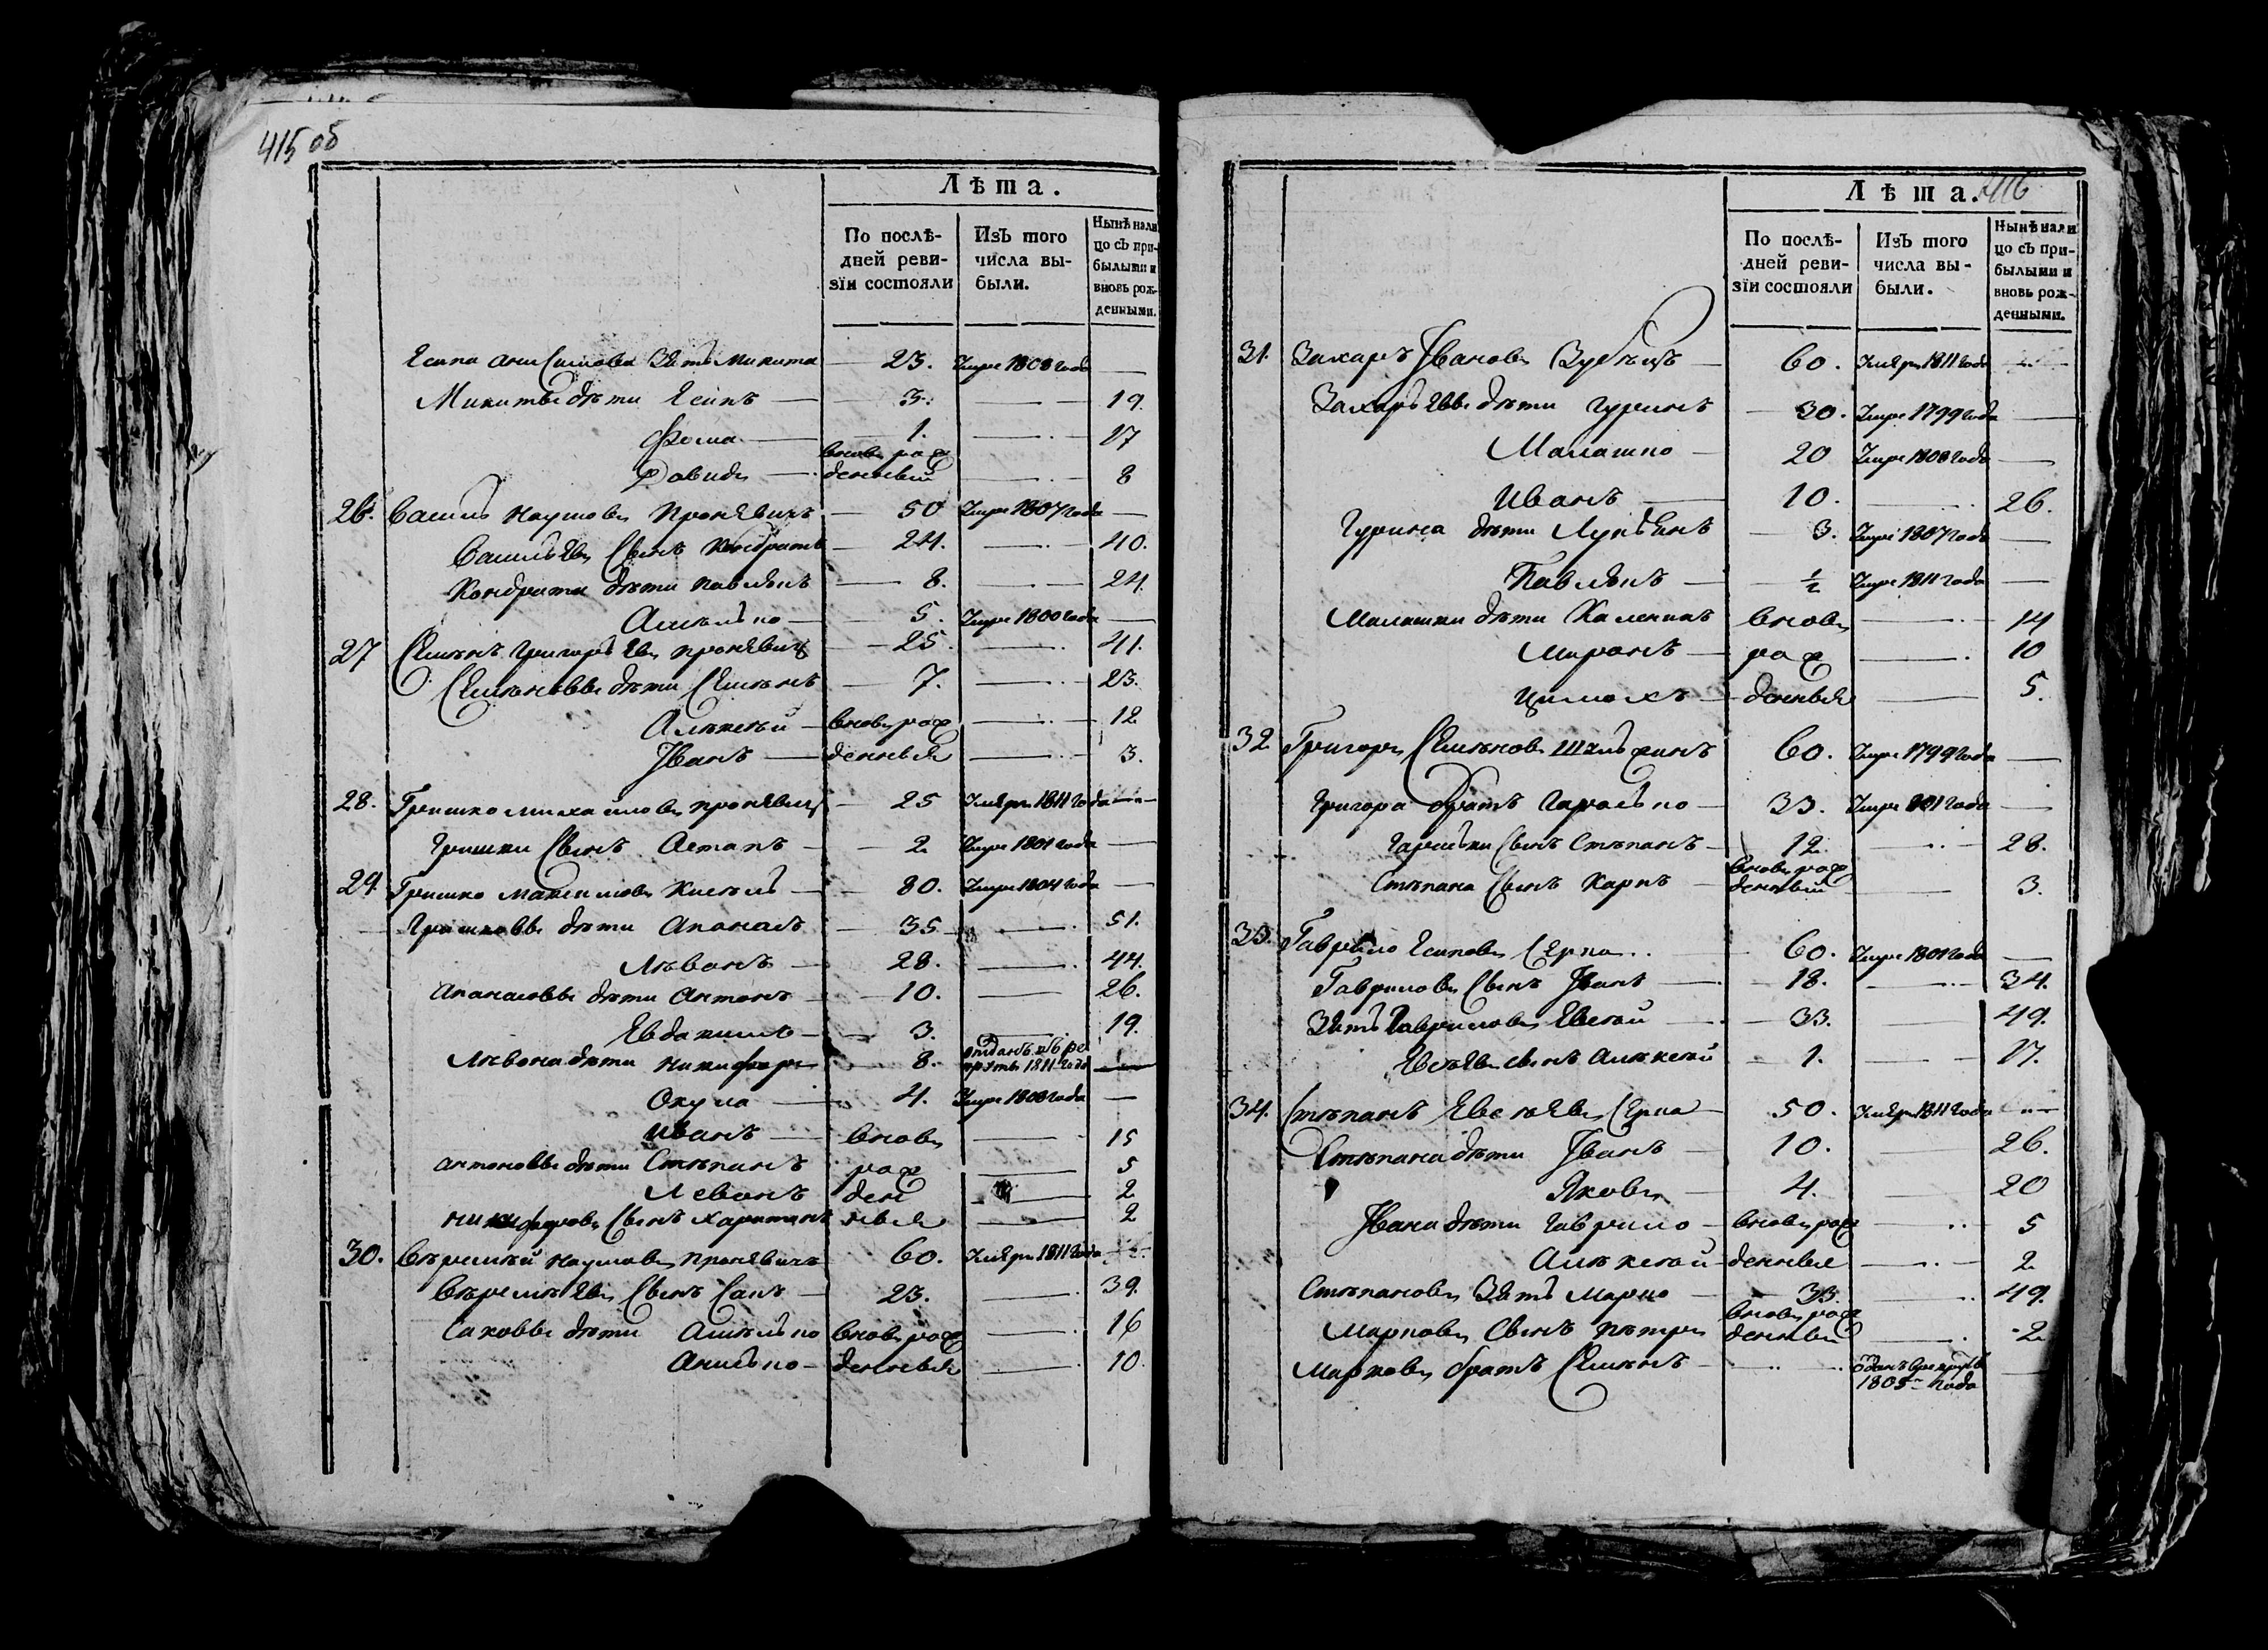 415 об
Лѣта.
По послѣ-
дней реви-
зїи состояли
Изъ того
числа вы-
были.
Нынѣ нали
цо съ при-
былыми и
вновь рож-
денными.
Есипа Анисимова Зять Микита — 23. Умре 1808 года —
Микитъ дѣти Есипъ — 3. — 19.
Фома — 1. — 17
Давидъ — вновь рож денный — 8
26. Василь Наумовъ Проневичъ — 50 Умре 1807 года —
Васильевъ Сынъ Кондратъ — 24. — 40.
Кондрата дѣти Павлюкъ — 8. — 24.
Амелько — 5. Умре 1800 года —
27 Семенъ Григорьевъ Проневичъ — 25. — 41.
Семеновы дѣти Семенъ — 7. — 23.
Алексей — вновь рож — 12
Иванъ — денныя — 3.
28. Гришко Михайловъ Проневичъ — 25 Умеръ 1811 года —
Гришки Сынъ Астапъ — 2 Умре 1801 года —
29 Гришко Максимовъ Кисель — 80. Умре 1804 года —
Гришковы дѣти Апанасъ — 35 — 51.
Леванъ — 28. — 44.
Апанасовы дѣти Антонъ — 10. — 26.
Евдакимъ — 3. — 19.
Левона дѣти Никифоръ — 8. отданъ въ ре крутъ 1811 года —
Окула — 4. Умре 1808 года —
Иванъ — вновь — 15
Антоновы дѣти Степанъ рож — 5
Леванъ ден — 2
Никифоровъ Сынъ Харитонъ ныя — 2
30. Еремей Наумовъ Проневичъ 60. Умеръ 1811 года —
Еремеевъ Сынъ Сакъ — 23. — 39.
Саковы дѣти Амелько вновь рож — 16
Анисько — денныя — 10.
416
Лѣта.
По послѣ-
дней реви-
зїи состояли
Изъ того
числа вы-
были.
Нынѣ нали
цо съ при-
былыми и
вновь рож-
денными.
31. Захаръ Ивановъ Зубецъ — 60. Умеръ 1811 года —
Захарьевы дѣти Гуринъ — 30. Умре 1799 года —
Малашко — 20 Умре 1808 года —
Иванъ — 10. — 26.
Гурина дѣти Лукьянъ — 3. Умре 1807 года —
Павлюкъ — ½ Умре 1811 года —
Малашки дѣти Каленикъ вновь — 14
Миронъ — рож — 10
Цимохъ — денныя — 5.
32 Григоръ Семеновъ — 60. Умре 1799 года —
Григора братъ Гарасько — 33. Умре 801 года —
Гараськи Сынъ Степанъ — 12. — 28.
Степана Сынъ Карпъ — вновь рож денный — 3.
33. Гаврило Есиповъ Серпа — 60. Умре 1801 года —
Гавриловъ Сынъ Иванъ — 18. — 34.
Зять Гавриловъ Евсей — 33. — 49.
Евсеевъ сынъ Алексей — 1. — 17.
34. Степанъ Евсеевъ Серпа — 50. Умеръ 1811 года —
Степана дѣти Иванъ — 10. — 26.
Яковъ — 4. — 20
Ивана дѣти Гаврило — вновь рож — 5
Алексей — денныя — 2
Степановъ Зять Марко — 33. — 49.
Марковъ Сынъ Петръ вновь рож денный — 2
Марковъ братъ Семенъ — отданъ в рекруты 1805 года —